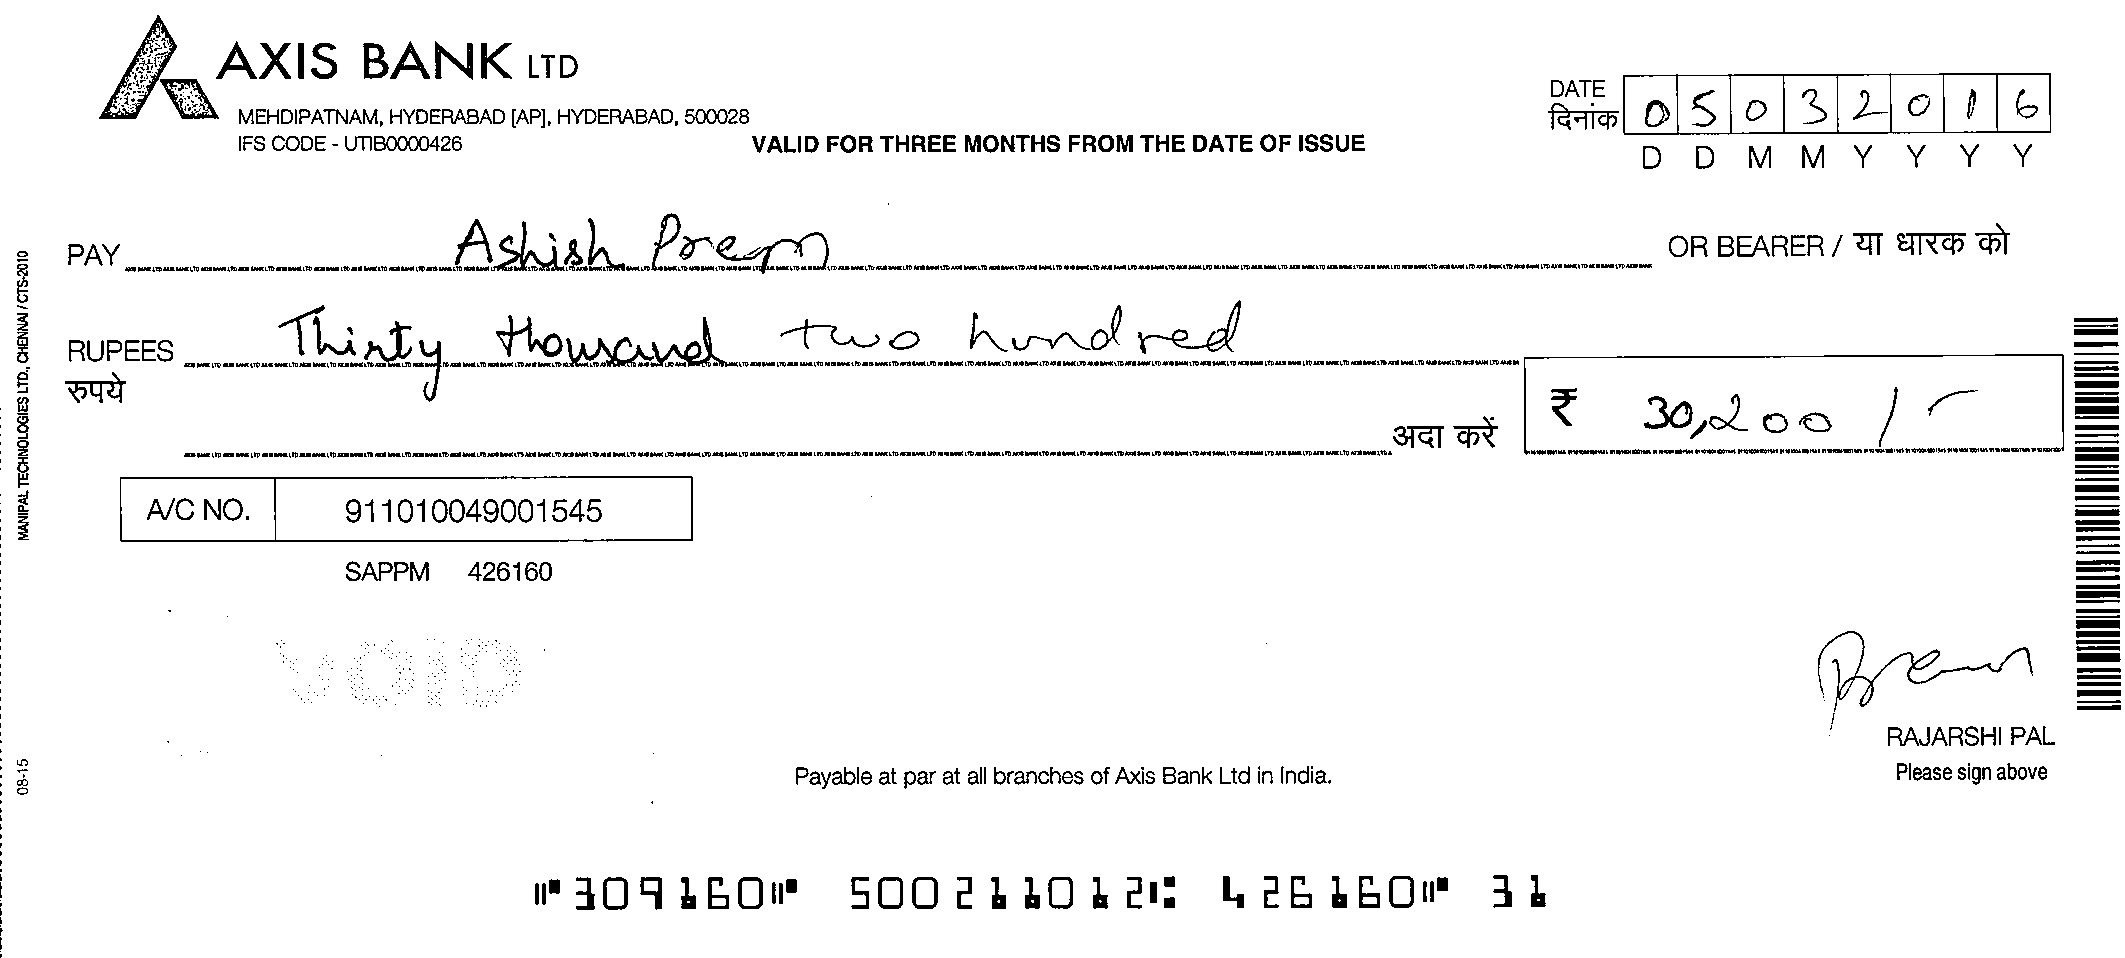 AXIS BANK LTD
MEHDIPATNAM, HYDERABAD [AP], HYDERABAD, 500028
IFS CODE - UTIB0000426
VALID FOR THREE MONTHS FROM THE DATE OF ISSUE
DATE
दिनांक
0 5 0 3 2 0 1 6
D D M M Y Y Y Y
PAY Ashish Prem OR BEARER / या धारक को
RUPEES Thirty thousand two hundred
रुपये
अदा करें ₹ 30,200 /-
A/C NO. 911010049001545
SAPPM 426160
VOID
Prem
RAJARSHI PAL
Please sign above
Payable at par at all branches of Axis Bank Ltd in India.
⑈309160⑈ 500211012⑆ 426160⑈ 31
MANIPAL TECHNOLOGIES LTD, CHENNAI / CTS-2010
08-15